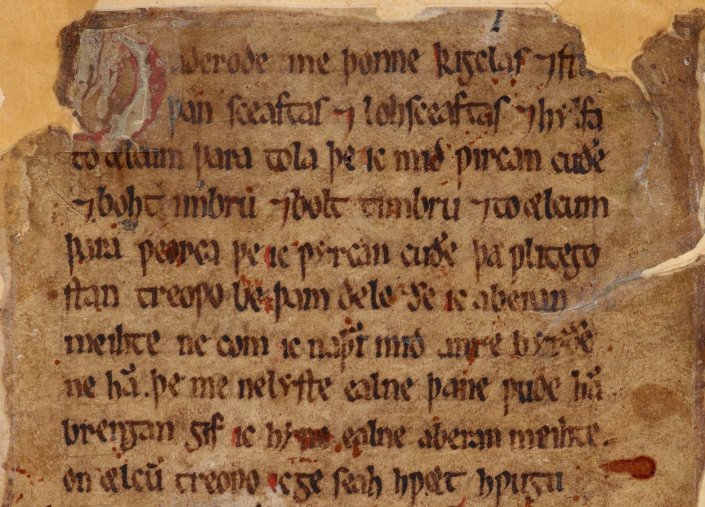 aderode me þonne kigclas ⁊ stu
þan sceaftas ⁊ lohsceaftas ⁊ hylfa
to ælcum þara tola þe ic mid ƿircan cuðe
⁊ bohtimbrū ⁊ bolt timbru ⁊ to ælcum
þara ƿeorca þe ic ƿyrcan cuðe þa ƿlitego
stan treoƿo be þam dele ðe ic aberan
meihte ne com ic naþer mid anre byrðene
ne hā. þe me ne lyste ealne þane ƿude hā
brengan gif ic hyne ealne aberan meihte.
on ælcū treoƿo ic ge seah hƿæt hƿugu